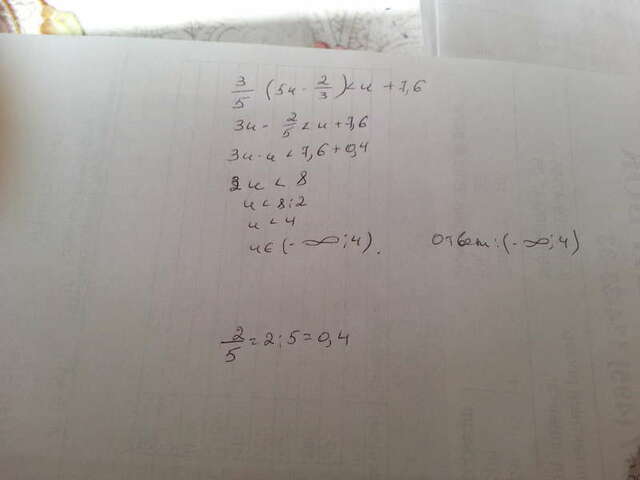 3/5 (5u - 2/3) < u + 7,6
3u - 2/5 < u + 7,6
3u - u < 7,6 + 0,4
2u < 8
u < 8 : 2
u < 4
u ∈ (-∞; 4).
Ответ: (-∞; 4)
2/5 = 2 : 5 = 0,4